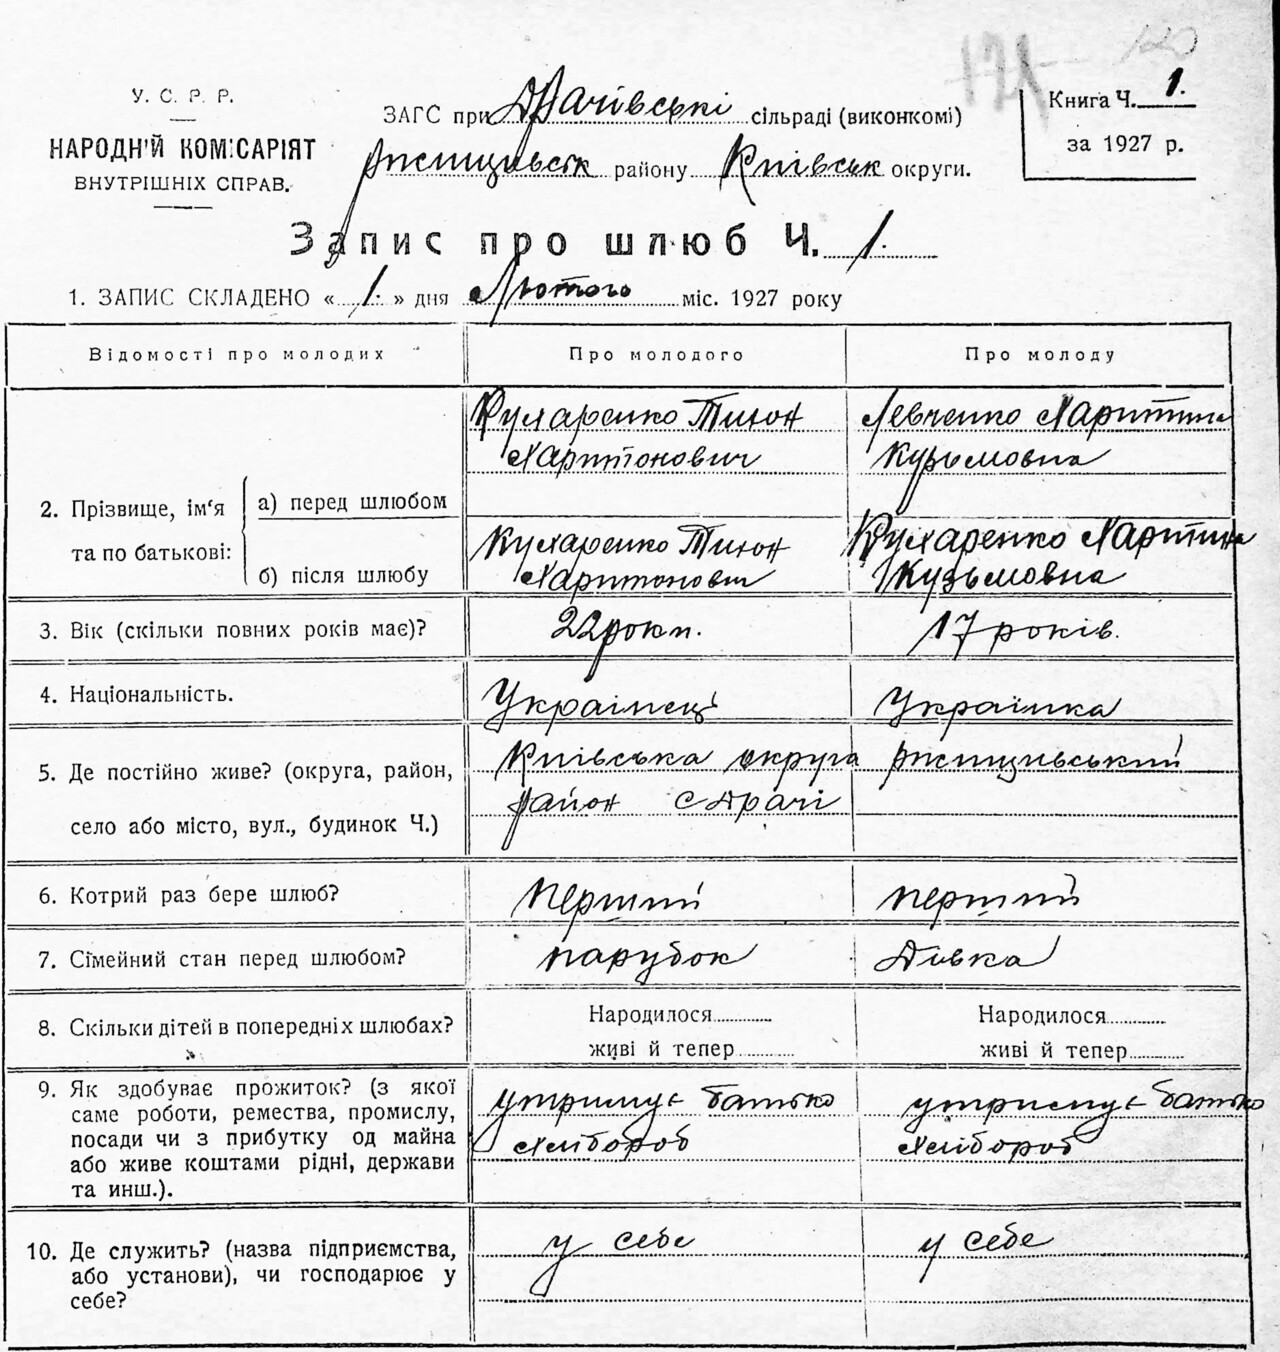 120
У. С. Р. Р.
НАРОДНИЙ КОМІСАРІЯТ
ВНУТРІШНІХ СПРАВ.
ЗАГС при Драчівські сільраді (виконкомі)
Ржищивськ району Київськ округи.
Книга Ч. 1.
за 1927 р.
Запис про шлюб Ч. 1.
1. ЗАПИС СКЛАДЕНО « 1. » дня Лютого міс. 1927 року
Відомості про молодих
Про молодого
Про молоду
2. Прізвище, ім‘я та по батькові:
а) перед шлюбом
Кухаренко Тихон
Харитонович
Левченко Харитина
Кузьмовна
б) після шлюбу
Кухаренко Тихон
Харитонович
Кухаренко Харитина
Кузьмовна
3. Вік (скільки повних років має)?
22 роки.
17 років.
4. Національність.
Українець
Українка
5. Де постійно живе? (округа, район,
село або місто, вул., будинок Ч.)
Київська округа Ржищивський
район с Драчі
6. Котрий раз бере шлюб?
перший
перший
7. Сімейний стан перед шлюбом?
парубок
Дівка
8. Скільки дітей в попередніх шлюбах?
Народилося
живі й тепер
Народилося
живі й тепер
9. Як здобуває прожиток? (з якої
саме роботи, ремества, промислу,
посади чи з прибутку од майна
або живе коштами рідні, держави
та инш.).
утримує батько
хлібороб
утримує батько
хлібороб
10. Де служить? (назва підприємства,
або установи), чи господарює у
себе?
у себе
у себе